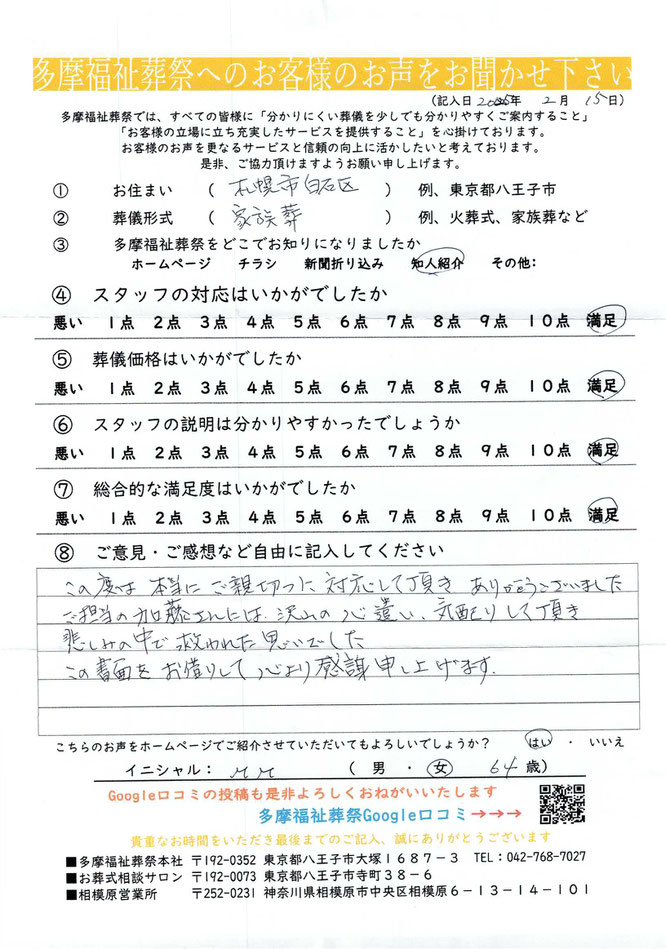 多摩福祉葬祭へのお客様のお声をお聞かせ下さい
(記入日 2025年 2月 15日)
多摩福祉葬祭では、すべての皆様に「分かりにくい葬儀を少しでも分かりやすくご案内すること」
「お客様の立場に立ち充実したサービスを提供すること」を心掛けております。
お客様のお声を更なるサービスと信頼の向上に活かしたいと考えております。
是非、ご協力頂けますようお願い申し上げます。
① お住まい ( 札幌市白石区 ) 例、東京都八王子市
② 葬儀形式 ( 家族葬 ) 例、火葬式、家族葬など
③ 多摩福祉葬祭をどこでお知りになりましたか
ホームページ チラシ 新聞折り込み 知人紹介 その他:
④ スタッフの対応はいかがでしたか
悪い 1点 2点 3点 4点 5点 6点 7点 8点 9点 10点 満足
⑤ 葬儀価格はいかがでしたか
悪い 1点 2点 3点 4点 5点 6点 7点 8点 9点 10点 満足
⑥ スタッフの説明は分かりやすかったでしょうか
悪い 1点 2点 3点 4点 5点 6点 7点 8点 9点 10点 満足
⑦ 総合的な満足度はいかがでしたか
悪い 1点 2点 3点 4点 5点 6点 7点 8点 9点 10点 満足
⑧ ご意見・ご感想など自由に記入してください
この度は 本当に ご親切に 対応して頂き ありがとうございました
ご担当の加藤さんには、沢山の心遣い、気配りして頂き
悲しみの中で救われた思いでした
この書面をお借りして 心より感謝申し上げます.
こちらのお声をホームページでご紹介させていただいてもよろしいでしょうか? はい ・ いいえ
イニシャル: M M ( 男 ・ 女 64 歳)
Google口コミの投稿も是非よろしくおねがいいたします
多摩福祉葬祭Google口コミ→→→
貴重なお時間をいただき最後までのご記入、誠にありがとうございます
■多摩福祉葬祭本社 〒192-0352 東京都八王子市大塚1687-3 TEL:042-768-7027
■お葬式相談サロン 〒192-0073 東京都八王子市寺町38-6
■相模原営業所 〒252-0231 神奈川県相模原市中央区相模原6-13-14-101